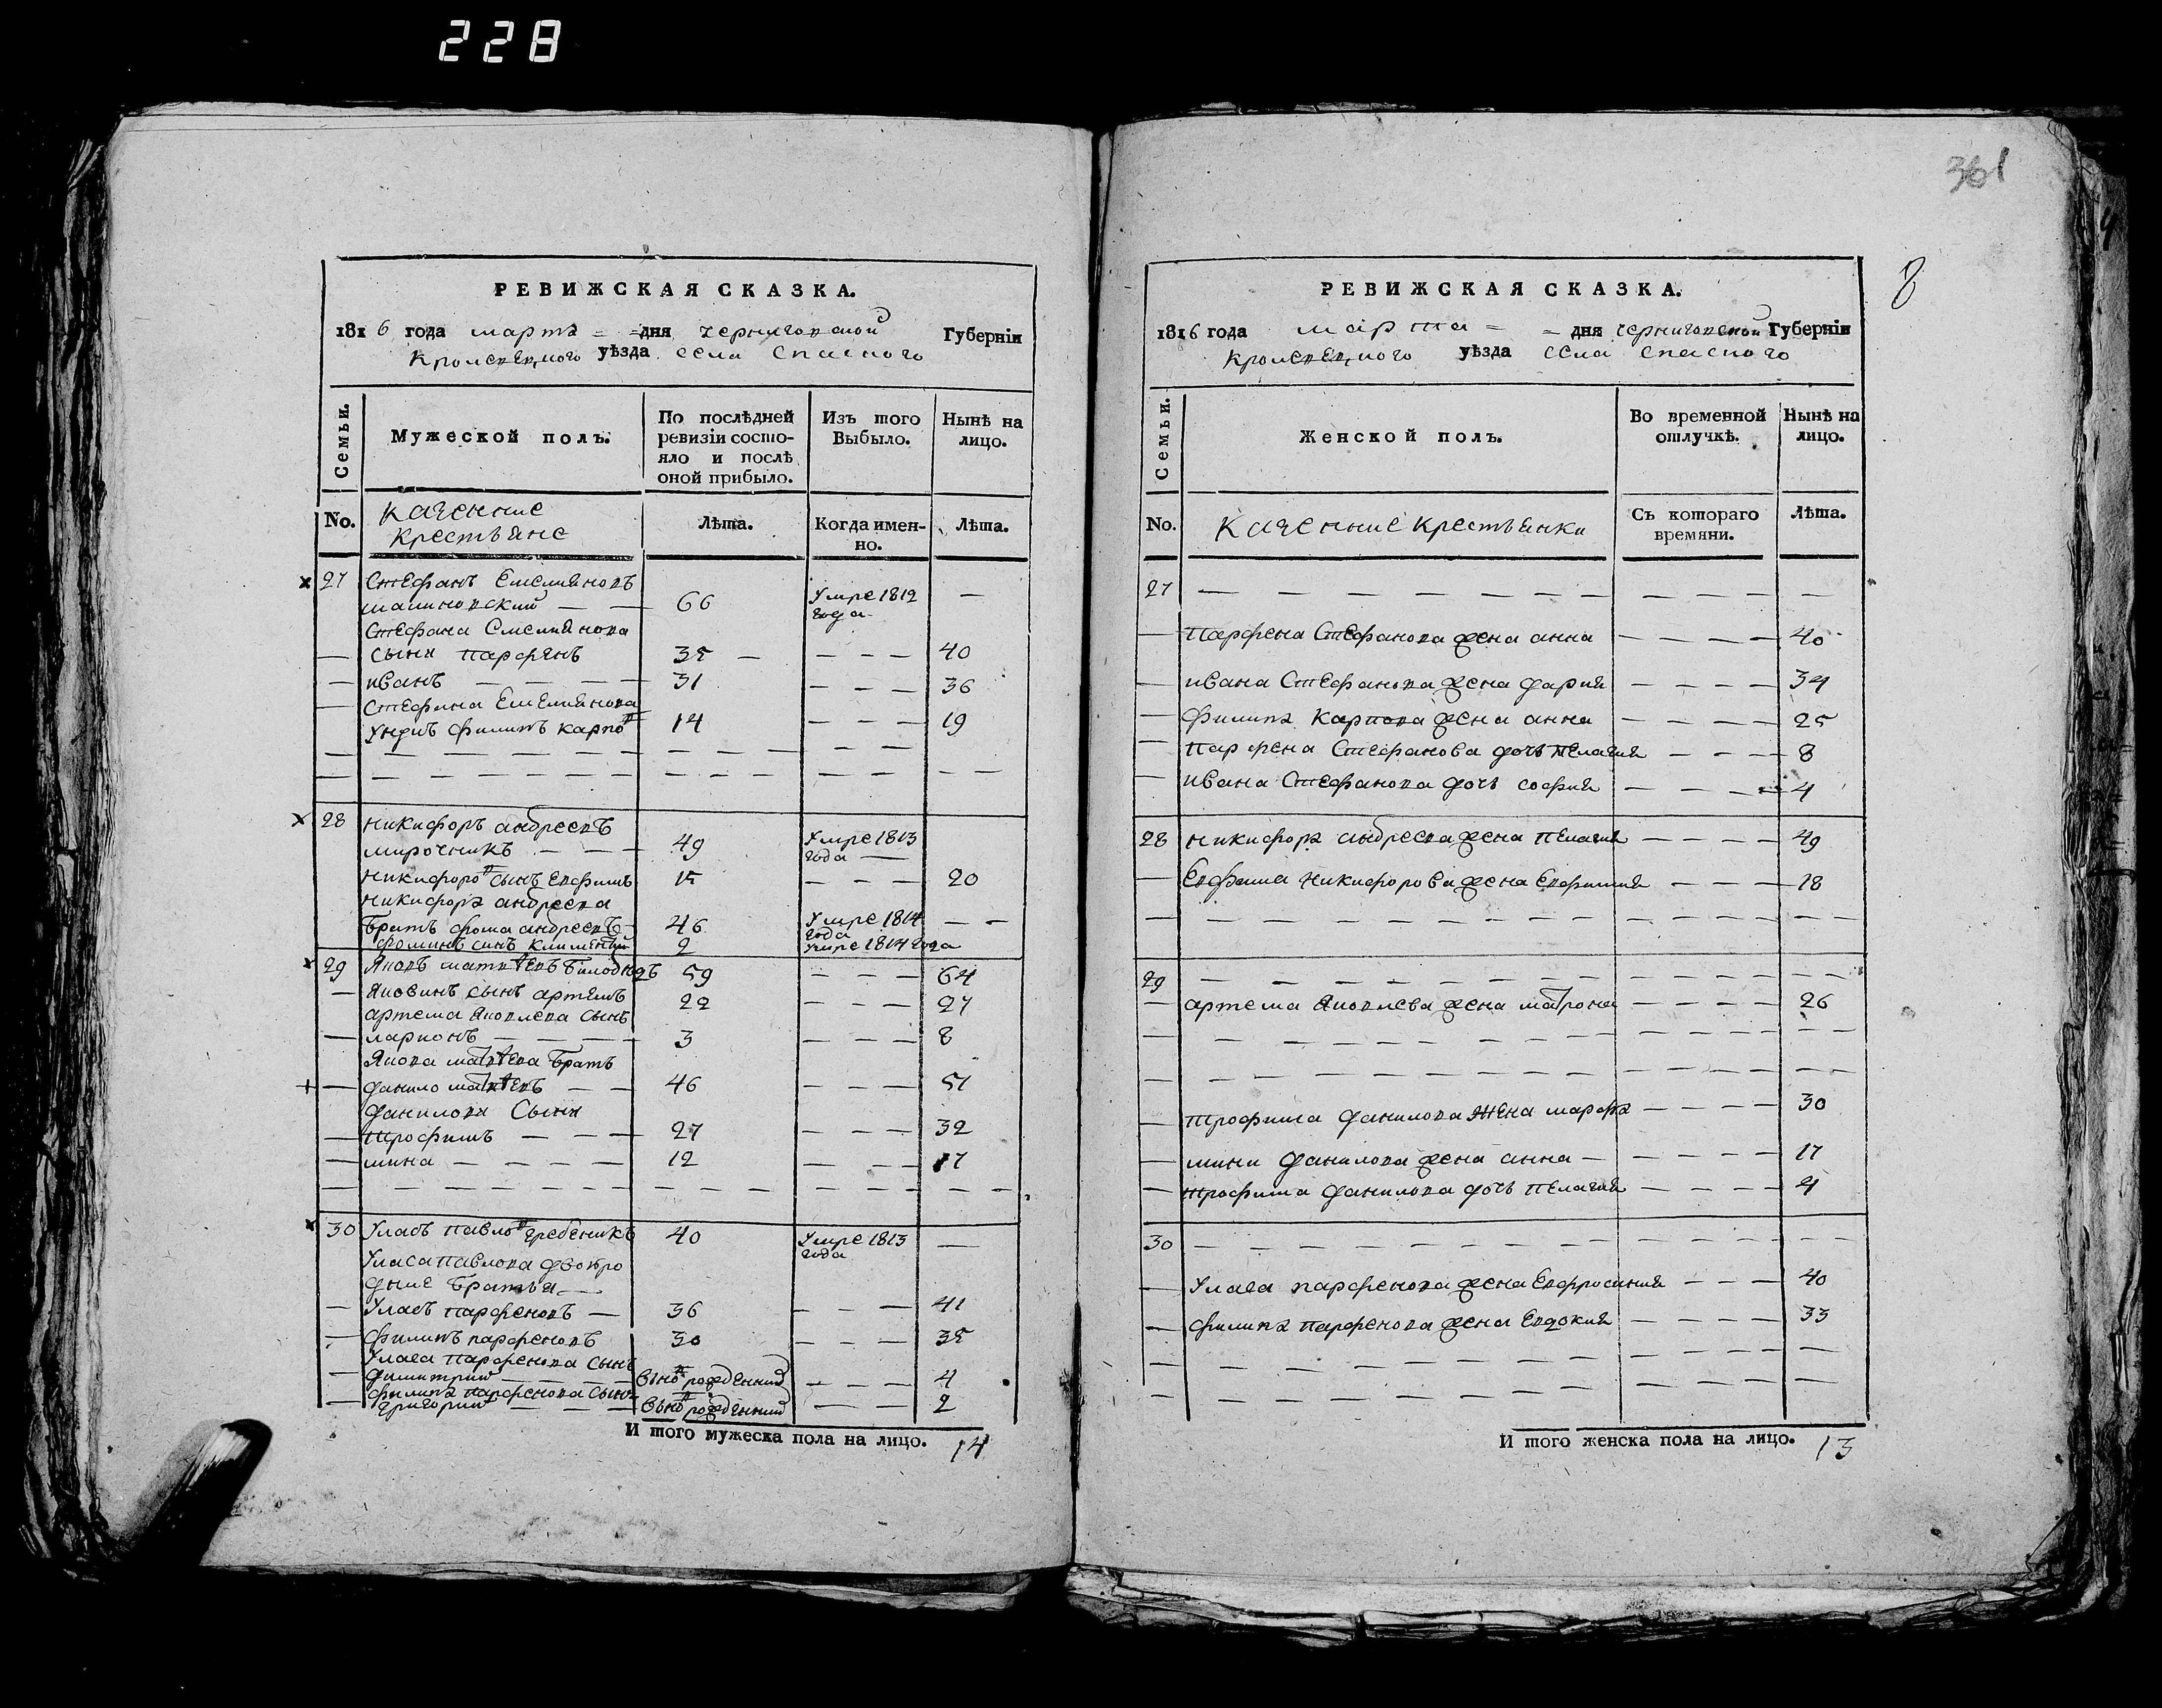 228
РЕВИЖСКАЯ СКАЗКА.
1816 года марта = = дня черниговской Губернiи
Кролевецкого уѣзда села спаского
Семьи.
Мужеской полъ.
По послѣдней ревизiи состо-яло и послѣ оной прибыло.
Изъ того Выбыло.
Нынѣ на лицо.
No.
казенние
крестьяне
Лѣта.
Когда имен-но.
Лѣта.
27 Стефанъ Емелиановъ
малиновский — — 66 Умре 1812 года —
Стефана Емелианова
— сыни парфенъ 35 — — — — 40
— иванъ — — — — 31 — — — 36
— Стефана Емелианова
унукъ филипъ карпов 14 — — — 19
28 никифоръ андреевъ
мирочникъ — — — 49 Умре 1813 года —
никифоров сынъ Евфимъ 15 — — — 20
никифора андреева
братъ фома андреевъ 46 Умре 1814 года — —
фоминъ синъ климентий 2 умре 1814 года
29 Яковъ матвѣевъ 59 — — — 64
— Яковинъ сынъ артемъ 22 — — — 27
артема Яковлева сынъ
— ларионъ — — — — 3 — — — 8
Якова матвѣева братъ
— данило матвѣевъ — — 46 — — — 51
данилови Сыни
— трофимъ — — — 27 — — — 32
— мина — — — — 12 — — — 17
30 Уласъ павлов гребеникъ 40 Умре 1813 года —
Уласа павлова двоюро
дние братья —
— Уласъ парфеновъ — 36 — — — 41
— филипъ парфеновъ 30 — — — 35
Уласа парфенова сынъ
— димитрий — — — вновь рожденний — — — 4
филипа парфенова сынъ
— григорий — — — вновь рожденний — — — 2
И того мужеска пола на лицо. 14
361
8
РЕВИЖСКАЯ СКАЗКА.
1816 года марта = = дня черниговской Губернiи
кролевецкого уѣзда села спаского
Семьи.
Женской полъ.
Во временной отлучкѣ.
Нынѣ на лицо.
No.
казенние крестьянки
Съ котораго времяни.
Лѣта.
27 — — — — — — — —
— парфена Стефанова жена анна — — — — 40
— ивана Стефанова жена дария — — — — 34
— филипа карпова жена анна — — — — 25
— парфена Стефанова дочь пелагия — — — 8
— ивана Стефанова дочь софия — — — — 4
28 никифора андреева жена пелагия — — — — 49
— Евфима никифорова жена Евфимия — — — 18
29 — — — — — — — —
— артема Яковлева жена матрона — — — — 26
— трофима данилова жена марфа — — — — 30
— мини данилова жена анна — — — — — 17
— трофима данилова дочь пелагия — — — — 4
30 — — — — — — — —
— Уласа парфенова жена Евфросиния — — — 40
— филипа парфенова жена Евдокия — — — — 33
И того женска пола на лицо. 13